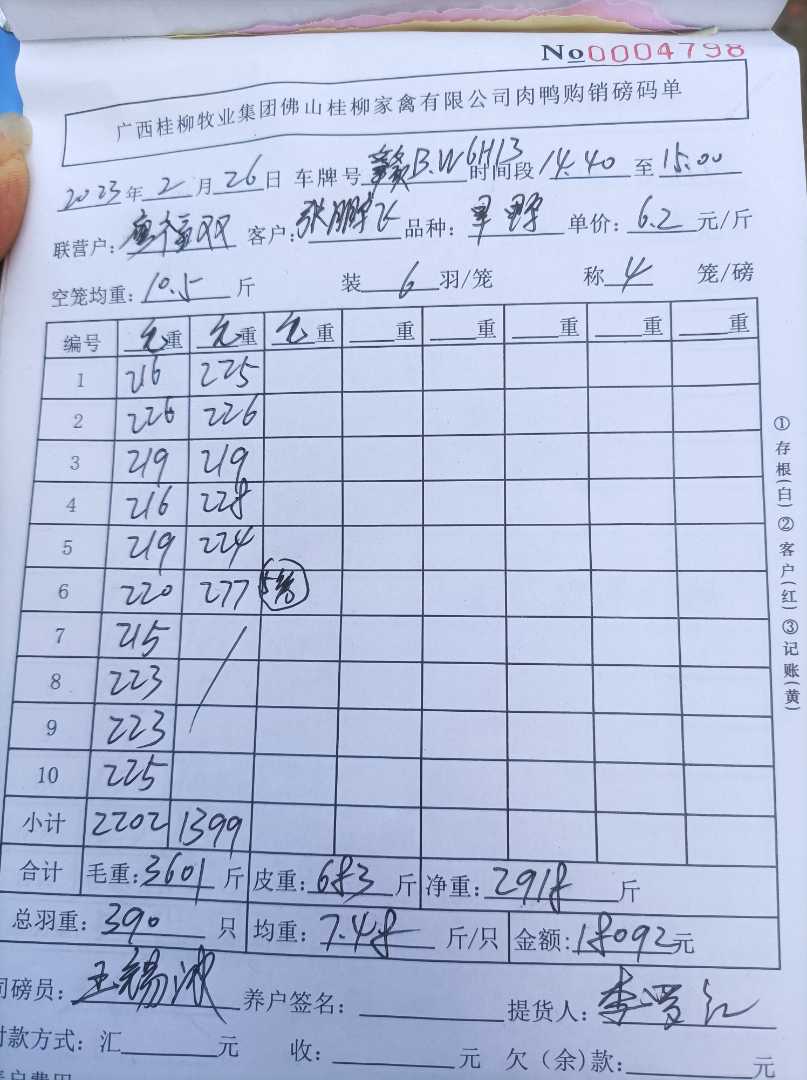 No0004798
广西桂柳牧业集团佛山桂柳家禽有限公司肉鸭购销磅码单
2023年2月26日 车牌号赣B.W6H13时间段14.40至15.00
联营户: 双 客户:张鹏飞 品种: 野 单价:6.2元/斤
空笼均重:10.5斤 装6羽/笼 称4笼/磅
编号 毛重 毛重 毛重 重 重 重 重 重
1 216 225
2 226 226
3 219 219
4 216 228
5 219 224
6 220 277 5笼
7 215
8 223
9 223
10 225
小计 2202 1399
合计 毛重:3601斤 皮重:683斤 净重:2918斤
总羽重:390只 均重:7.48斤/只 金额:18092元
司磅员:王锡波 养户签名: 提货人:李
付款方式:汇 元 收: 元 欠(余)款: 元
①存根(白)②客户(红)③记账(黄)